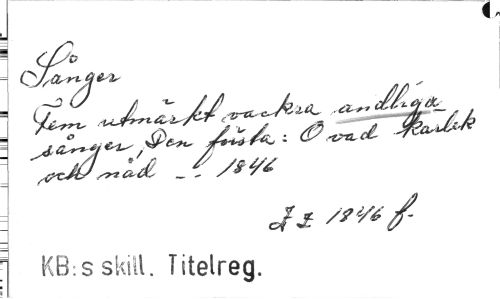 Sånger
Fem utmärkt vackra andliga
sånger, Den första: O vad kärlek
och nåd -- 1846
1846 f.
KB:s skill. Titelreg.